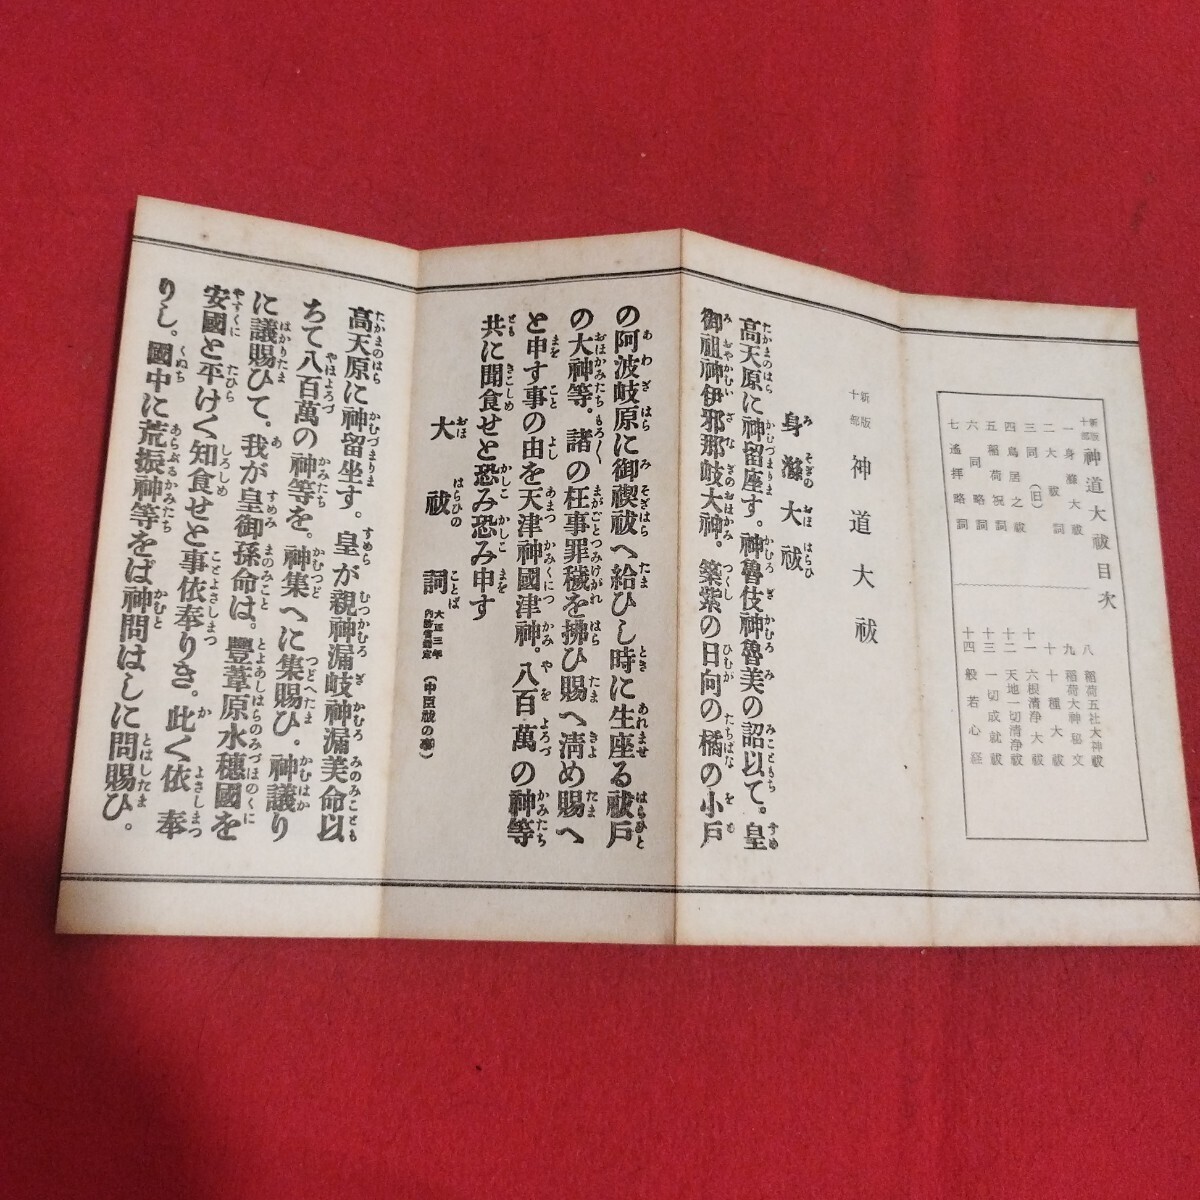 新版十部 神道大祓目次
一 身滌大祓
二 大祓詞
三 同（旧）
四 鳥居之祓
五 稲荷祝詞
六 同略詞
七 遙拝略詞
八 稲荷五社大神祓
九 稲荷大神秘文
十 十種大祓
十一 六根清浄大祓
十二 天地一切清浄祓
十三 一切成就祓
十四 般若心経
新版十部 神道大祓
身滌大祓
高天原に神留座す。神魯伎神魯美の詔以て。皇
御祖神伊邪那岐大神。築紫の日向の橘の小戸
の阿波岐原に御禊祓へ給ひし時に生座る祓戸
の大神等。諸の枉事罪穢を拂ひ賜へ淸め賜へ
と申す事の由を天津神國津神。八百萬の神等
共に聞食せと恐み恐み申す
大祓詞 大正三年内務省制定（中臣祓の事）
高天原に神留坐す。皇が親神漏岐神漏美命以
ちて八百萬の神等を。神集へに集賜ひ。神議り
に議賜ひて。我が皇御孫命は。豐葦原水穗國を
安國と平けく知食せと事依奉りき。此く依奉
りし。國中に荒振神等をば神問はしに問賜ひ。